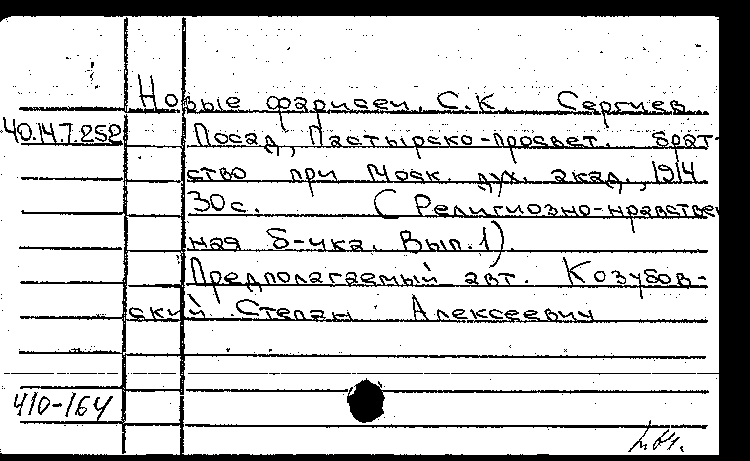 Новые фарисеи. С.К. Сергиев
40.14.7.252 Посад, Пастырско-просвет. брат-
ство при Моск. дух. акад., 1914
30с. (Религиозно-нравствен
ная б-чка. Вып. 1).
Предполагаемый авт. Козубов-
ский Степан Алексеевич
410-164